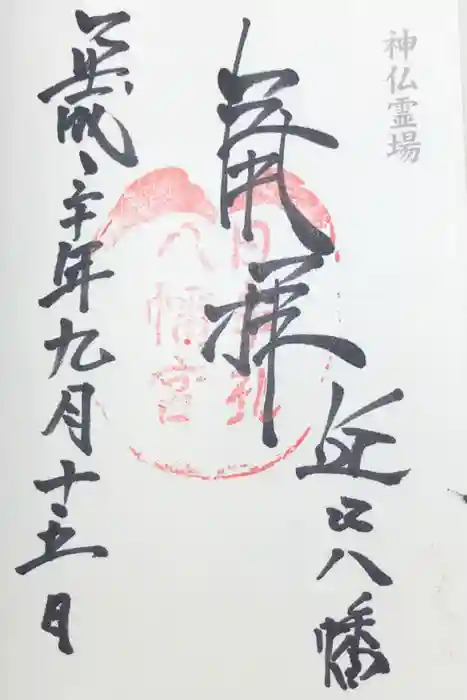 神仏霊場
奉拝
近江八幡
日牟礼
八幡宮
平成二十年九月十五日